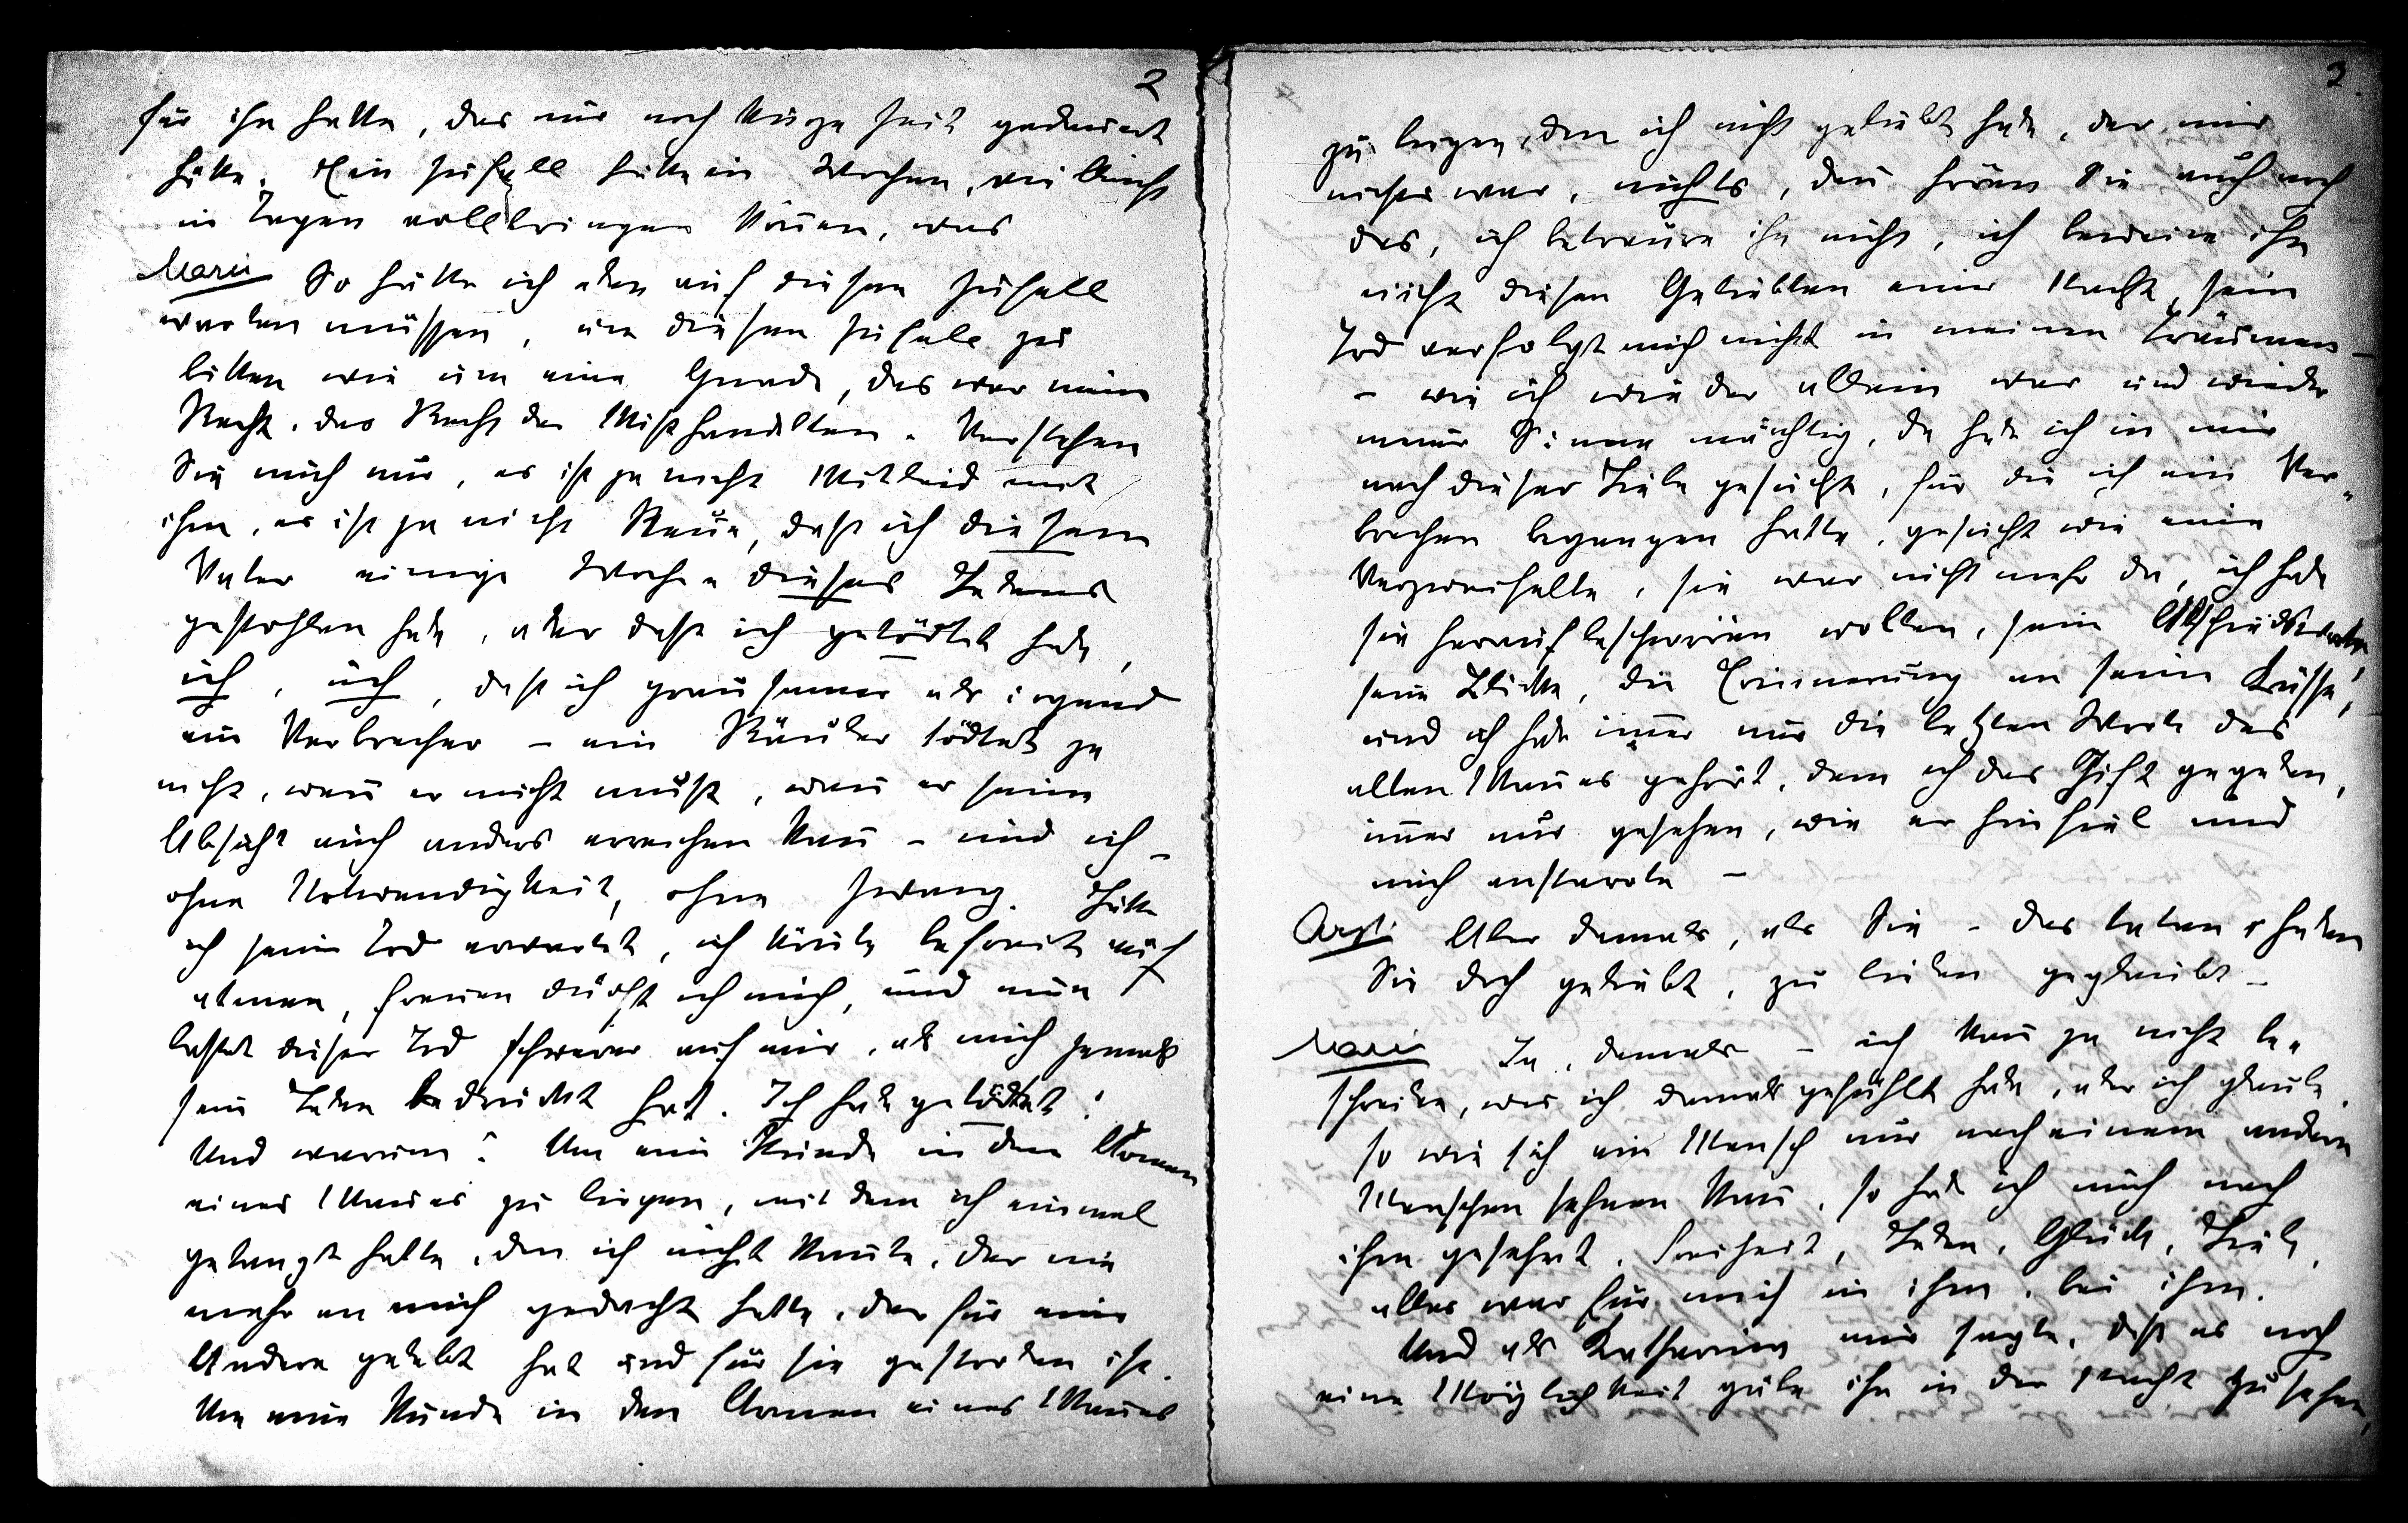 2
für ihn hatte, das nur noch kurze Zeit gedauert
hätte. Ein Zufall hätte in Wochen, vielleicht
in Tagen vollbringen können, was
Marie So hätte ich eben auf diesen Zufall
warten müssen, um diesen Zufall zu
bitten wie um eine Gnade, das war mein
Recht, das Recht der Mißhandelten. Verstehen
Sie mich nur, es ist ja nicht Mitleid mit
ihm, es ist ja nicht Reue, daß ich diesem
Vater einige Wochen dieses Lebens
gestohlen habe, aber daß ich getödtet habe,
ich, ich, daß ich grausamer als irgend
ein Verbrecher – ein Räuber tödtet ja
nicht, wenn er nicht muß, wenn er seine
Absicht auch anders erreichen kann – und ich –
ohne Notwendigkeit, ohne Zwang. Hätte
ich sein Tod erwartet, ich könnte befreit auf
atmen, freuen dürft ich mich, und nun
lastet dieser Tod schwerer auf mir, als mich jemals
sein Leben bedrückt hat. Ich habe getödtet!
Und warum? Um eine Stunde in den Armen
eines Mannes zu liegen, mit dem ich einmal
getanzt hatte, den ich nicht kannte, der nie
mehr an mich gedacht hatte, der für eine
Andere gelebt hat und für sie gestorben ist.
Um eine Stunde in den Armen eines Mannes
3.
zu liegen, den ich nicht geliebt habe, der mir
nichts war, nichts, denn hören Sie auch noch
das, ich betraure ihn nicht, ich beweine ihn
nicht diesen Geliebten einer Nacht, sein
Tod verfolgt mich nicht in meinen Träumen –
– wie ich wieder allein war und wieder
meiner Sinne mächtig, da habe ich in mir
nach dieser Liebe gesucht, für die ich ein Ver-
brechen begangen hatte, gesucht wie eine
Verzweifelte, sie war nicht mehr da, ich habe
sie heraufbeschwören wollen, seine Abschiedsworte,
seine Blicke, die Erinnerung an seine Küsse,
und ich habe immer nur die letzten Worte des
alten Mannes gehört, dem ich das Gift gegeben,
immer nur gesehen, wie er hinfiel und
mich anstarrte –
Arzt Aber damals, als Sie – das taten haben
Sie doch geliebt, zu lieben geglaubt –
Marie Ja, damals – ich kann ja nicht be-
schreiben, was ich damals gefühlt habe, aber ich glaube
so wie sich ein Mensch nur nach einem andern
Menschen sehnen kann, so hab ich mich nach
ihm gesehnt. Freiheit, Leben, Glück, Liebe,
alles war für mich in ihm, bei ihm.
Und als Katharina mir sagte, daß es noch
eine Möglichkeit gäbe ihn in der Nacht zu sehen,